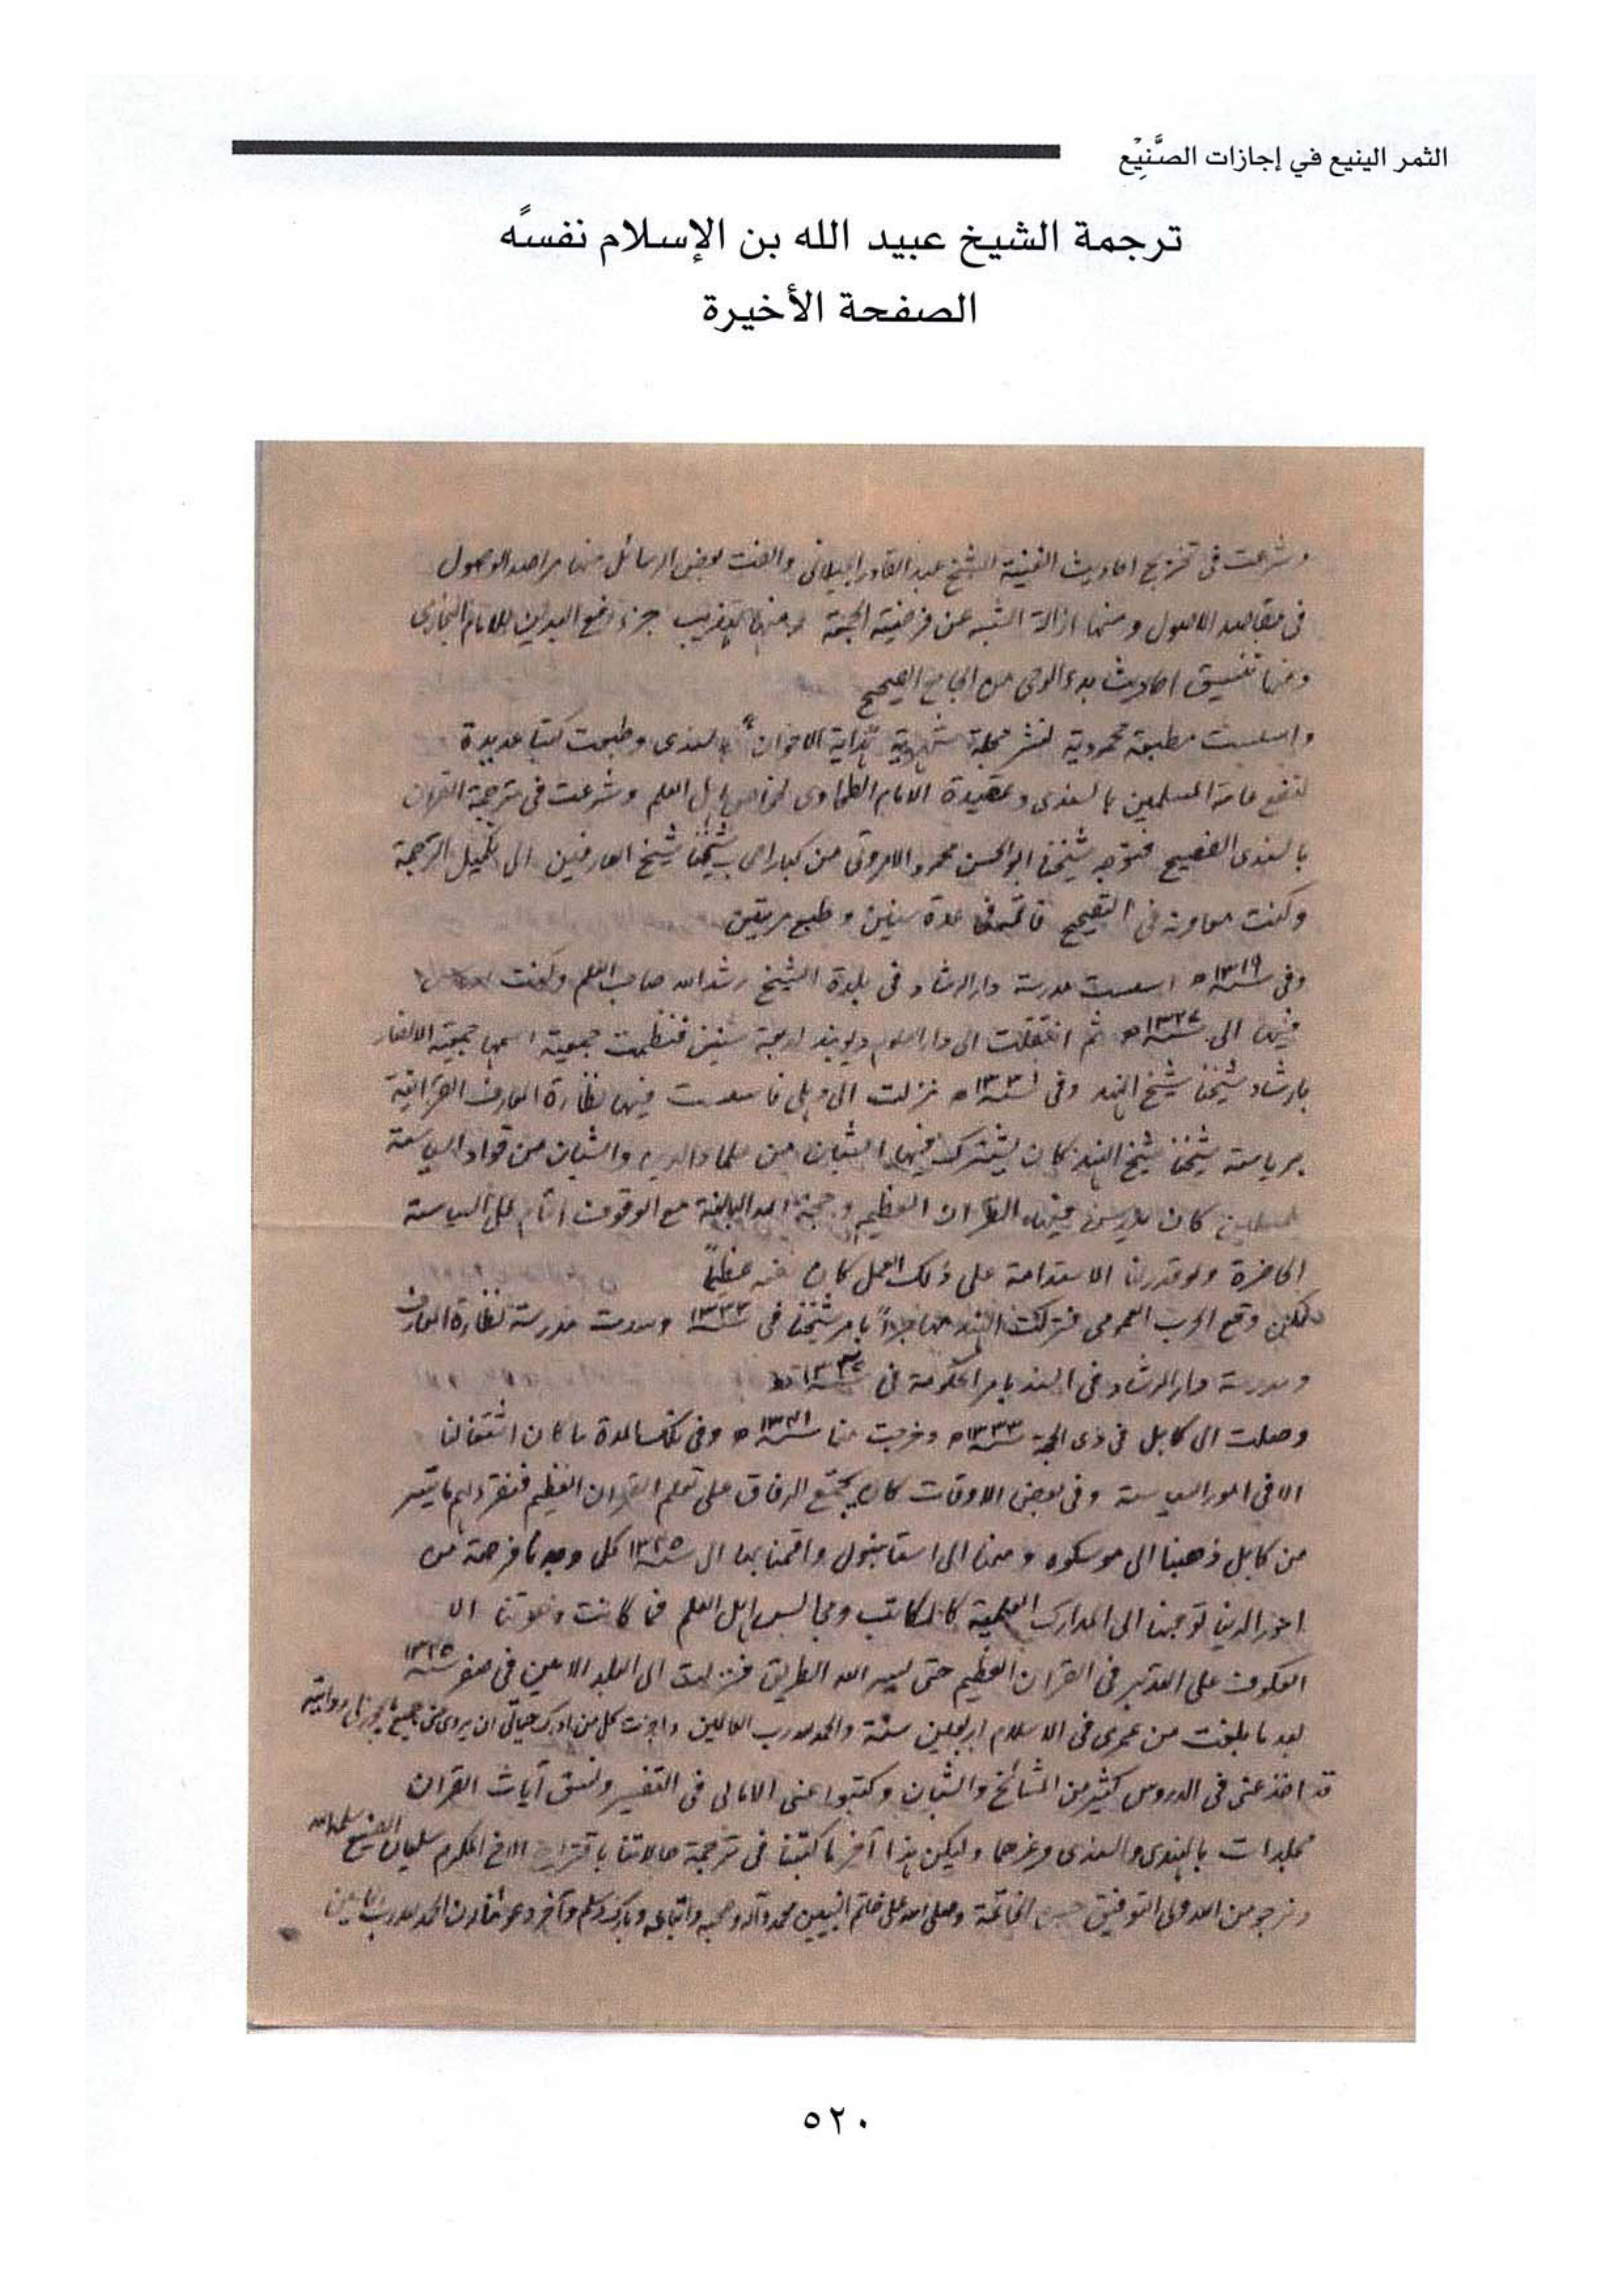 الثمر الينيع في إجازات الصَّنِيْع
ترجمة الشيخ عبيد الله بن الإسلام نفسهً
الصفحة الأخيرة
وشرعت في تخريج احاديث الغنية للشيخ عبد القادر الجيلاني والفت بعض الرسائل منها مراصد الوصول
في مقاصد الاصول ومنها ازالة الشبه عن فرضية الجمعة ومنها تعريب جزء رفع اليدين للامام البخاري
ومنها تنسيق احاديث بدء الوحي من الجامع الصحيح
واسست مطبعة محمودية لنشر مجلة شهرية هداية الاخوان بالسندى وطبعت كتبا عديدة
لنفع عامة المسلمين بالسندى وعقيدة الامام الطحاوى لخواص اهل العلم وشرعت في ترجمة القران
بالسندى الفصيح فتوجه شيخنا ابو الحسن محمود الامروتى من كبار اصحاب شيخنا شيخ العارفين الى تكميل الترجمة
وكنت معاونه في التصحيح فاتمها في عدة سنين وطبع مرتين
وفي سنة ١٣١٩ه اسست مدرسة دار الرشاد في بلدة الشيخ رشد الله صاحب العلم وكنت
فيها الى سنة ١٣٢٧ه ثم انتقلت الى دار العلوم ديوبند اربعة سنين فنظمت جمعية اسمها جمعية الانصار
بارشاد شيخنا شيخ الهند وفي سنة ١٣٣١ه نزلت الى دهلى فاسست فيها نظارة المعارف القرآنية
برياسة شيخنا شيخ الهند كان يشترك فيها الشبان من علماء الدين والشبان من قواد السياسة
للمسلمين كان يدرس فيها القرآن العظيم وحجة الله البالغة مع الوقوف التام على السياسة
الحاضرة ولو قدرنا الاستدامة على ذلك العمل كان نفعه عظيماً
لكن وقع الحرب العمومى فتركت الهند مهاجراً بامر شيخنا في سنة ١٣٣٣ وسدت مدرسة نظارة المعارف
ومدرسة دار الرشاد في السند بامر الحكومة في سنة ١٣٣٤ه
وصلت الى كابل في ذى الحجة سنة ١٣٣٣ه وخرجت منها سنة ١٣٤١ه وفي تلك المدة ما كان اشتغالنا
الا في امور السياسة وفي بعض الاوقات كان يجتمع الرفاق على تعلم القران العظيم فنقرء لهم ما تيسر
من كابل ذهبنا الى موسكوه ومنها الى استانبول واقمنا بها الى سنة ١٣٤٥ كل وجدنا فرصة من
امور الدنيا توجهنا الى المدارك العلمية كالمكاتب ومجالس اهل العلم فما كانت الا
العكوف على التدبر في القران العظيم حتى يسر الله الطريق فنزلت الى البلد الامين في صفر سنة ١٣٤٥
بعد ما بلغت من عمرى في الاسلام اربعين سنة والحمد لله رب العالمين واجزت كل من ادرك حياتى ان يروى عنى جميع ما يجوز لى روايته
قد اخذ عنى في الدروس كثير من المشائخ والشبان وكتبوا عنى الامالى في التفسير ونسق آيات القران
مجلدات بالهندى والسندى وغيرها وليكن هذا آخر ما كتبنا في ترجمة حالاتنا باقتراح الاخ المكرم سليمان الصنيع سلمه الله
ونرجو من الله ولى التوفيق حسن الخاتمة وصلى الله على خاتم النبيين محمد وآله وصحبه واتباعه وبارك وسلم وآخر دعوانا ان الحمد لله رب العالمين
٥٢٠